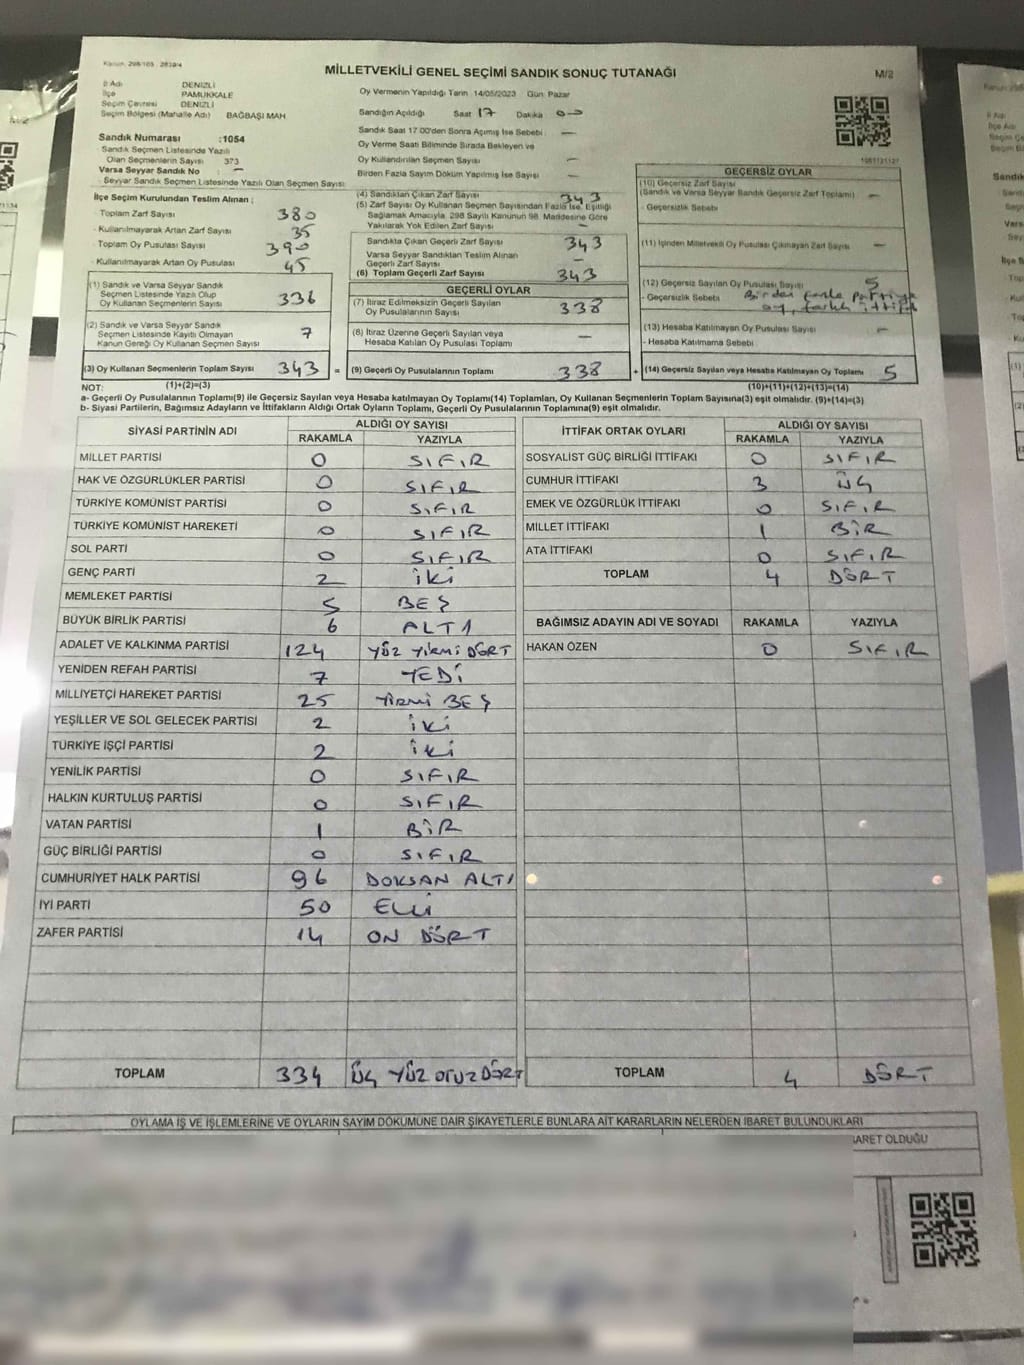 MİLLETVEKİLİ GENEL SEÇİMİ SANDIK SONUÇ TUTANAĞI
M/2
İl Adı DENİZLİ
İlçe PAMUKKALE
Seçim Çevresi DENİZLİ
Seçim Bölgesi (Mahalle Adı) BAĞBAŞI MAH
Sandık Numarası :1054
Sandık Seçmen Listesinde Yazılı
Olan Seçmenlerin Sayısı 373
Varsa Seyyar Sandık No : —
Seyyar Sandık Seçmen Listesinde Yazılı Olan Seçmen Sayısı:
Oy Vermenin Yapıldığı Tarih 14/05/2023 Gün: Pazar
Sandığın Açıldığı Saat 17 Dakika 00
Sandık Saat 17.00'den Sonra Açılmış İse Sebebi : —
Oy Verme Saati Bitiminde Sırada Bekleyen ve
Oy Kullandırılan Seçmen Sayısı —
Birden Fazla Sayım Döküm Yapılmış İse Sayısı —
İlçe Seçim Kurulundan Teslim Alınan ;
Toplam Zarf Sayısı 380
- Kullanılmayarak Artan Zarf Sayısı 35
Toplam Oy Pusulası Sayısı 390
- Kullanılmayarak Artan Oy Pusulası 45
(1) Sandık ve Varsa Seyyar Sandık
Seçmen Listesinde Yazılı Olup
Oy Kullanan Seçmenlerin Sayısı 336
(2) Sandık ve Varsa Seyyar Sandık
Seçmen Listesinde Kayıtlı Olmayan
Kanun Gereği Oy Kullanan Seçmen Sayısı 7
(3) Oy Kullanan Seçmenlerin Toplam Sayısı 343 =
(4) Sandıktan Çıkan Zarf Sayısı 343
(5) Zarf Sayısı Oy Kullanan Seçmen Sayısından Fazla İse, Eşitliği
Sağlamak Amacıyla, 298 Sayılı Kanunun 98. Maddesine Göre
Yakılarak Yok Edilen Zarf Sayısı —
Sandıkta Çıkan Geçerli Zarf Sayısı 343
Varsa Seyyar Sandıktan Teslim Alınan
Geçerli Zarf Sayısı —
(6) Toplam Geçerli Zarf Sayısı 343
GEÇERLİ OYLAR
(7) İtiraz Edilmeksizin Geçerli Sayılan
Oy Pusulalarının Sayısı 338
(8) İtiraz Üzerine Geçerli Sayılan veya
Hesaba Katılan Oy Pusulası Toplamı —
(9) Geçerli Oy Pusulalarının Toplamı 338 +
GEÇERSİZ OYLAR
(10) Geçersiz Zarf Sayısı
(Sandık ve Varsa Seyyar Sandık Geçersiz Zarf Toplamı) —
- Geçersizlik Sebebi
(11) İçinden Milletvekili Oy Pusulası Çıkmayan Zarf Sayısı —
(12) Geçersiz Sayılan Oy Pusulası Sayısı 5
- Geçersizlik Sebebi Birden fazla partiye
oy, farklı ittifak
(13) Hesaba Katılmayan Oy Pusulası Sayısı —
- Hesaba Katılmama Sebebi
(14) Geçersiz Sayılan veya Hesaba Katılmayan Oy Toplamı 5
NOT: (1)+(2)=(3) (10)+(11)+(12)+(13)=(14)
a- Geçerli Oy Pusulalarının Toplamı(9) ile Geçersiz Sayılan veya Hesaba katılmayan Oy Toplamı(14) Toplamları, Oy Kullanan Seçmenlerin Toplam Sayısına(3) eşit olmalıdır. (9)+(14)=(3)
b- Siyasi Partilerin, Bağımsız Adayların ve İttifakların Aldığı Ortak Oyların Toplamı, Geçerli Oy Pusulalarının Toplamına(9) eşit olmalıdır.
SİYASİ PARTİNİN ADI ALDIĞI OY SAYISI
RAKAMLA YAZIYLA
MİLLET PARTİSİ 0 SIFIR
HAK VE ÖZGÜRLÜKLER PARTİSİ 0 SIFIR
TÜRKİYE KOMÜNİST PARTİSİ 0 SIFIR
TÜRKİYE KOMÜNİST HAREKETİ 0 SIFIR
SOL PARTİ 0 SIFIR
GENÇ PARTİ 2 iki
MEMLEKET PARTİSİ 5 BEŞ
BÜYÜK BİRLİK PARTİSİ 6 ALTI
ADALET VE KALKINMA PARTİSİ 124 YÜZ YİRMİ DÖRT
YENİDEN REFAH PARTİSİ 7 YEDİ
MİLLİYETÇİ HAREKET PARTİSİ 25 YİRMİ BEŞ
YEŞİLLER VE SOL GELECEK PARTİSİ 2 iki
TÜRKİYE İŞÇİ PARTİSİ 2 iki
YENİLİK PARTİSİ 0 SIFIR
HALKIN KURTULUŞ PARTİSİ 0 SIFIR
VATAN PARTİSİ 1 BİR
GÜÇ BİRLİĞİ PARTİSİ 0 SIFIR
CUMHURİYET HALK PARTİSİ 96 DOKSAN ALTI
İYİ PARTİ 50 ELLİ
ZAFER PARTİSİ 14 ON DÖRT
TOPLAM 334 ÜÇ YÜZ OTUZ DÖRT
İTTİFAK ORTAK OYLARI ALDIĞI OY SAYISI
RAKAMLA YAZIYLA
SOSYALİST GÜÇ BİRLİĞİ İTTİFAKI 0 SIFIR
CUMHUR İTTİFAKI 3 ÜÇ
EMEK VE ÖZGÜRLÜK İTTİFAKI 0 SIFIR
MİLLET İTTİFAKI 1 BİR
ATA İTTİFAKI 0 SIFIR
TOPLAM 4 DÖRT
BAĞIMSIZ ADAYIN ADI VE SOYADI RAKAMLA YAZIYLA
HAKAN ÖZEN 0 SIFIR
TOPLAM 4 DÖRT
OYLAMA İŞ VE İŞLEMLERİNE VE OYLARIN SAYIM DÖKÜMÜNE DAİR ŞİKAYETLERLE BUNLARA AİT KARARLARIN NELERDEN İBARET BULUNDUKLARI
BARET OLDUĞU